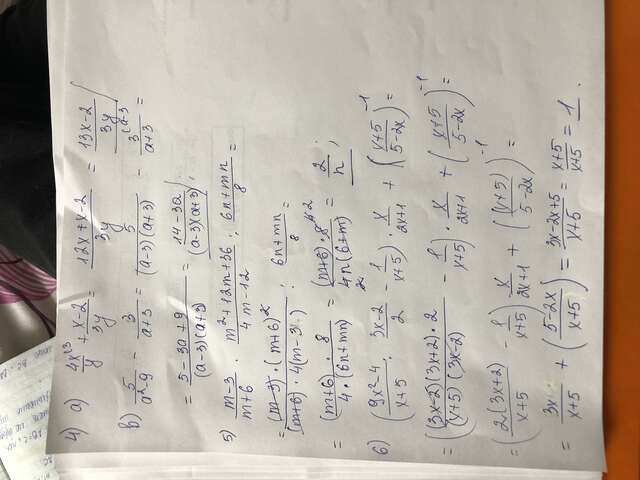 4) a) 4x^{\3}/y + x-2/3y = 12x+x-2/3y = 13x-2/3y
б) 5/a²9 - 3/a+3 = 5/(a-3)(a+3) - 3^{(a-3}/a+3 =
= 5-3a+9/(a-3)(a+3) = 14-3a/(a-3)(a+3) ;
5) m-3/m+6 · m²+12m+36/4m-12 : 6n+mn/8 =
= (m-3)·(m+6)²/(m+6)·4(m-3) : 6n+mn/8 =
= (m+6)·8/4·(6n+mn) = (m+6)·8 2/4n(6+m) = 2/n ;
6) (9x²-4/x+5 : 3x-2/2 - 1/x+5) · x/2x+1 + (x+5/5-2x)^{-1} =
= ((3x-2)(3x+2)·2/(x+5)(3x-2) - 1/x+5) · x/2x+1 + (x+5/5-2x)^{-1} =
= (2(3x+2)/x+5 - 1/x+5) x/2x+1 + ((x+5)/5-2x)^{-1} =
= 3x/x+5 + (5-2x/x+5) = 3x-2x+5/x+5 = x+5/x+5 = 1.